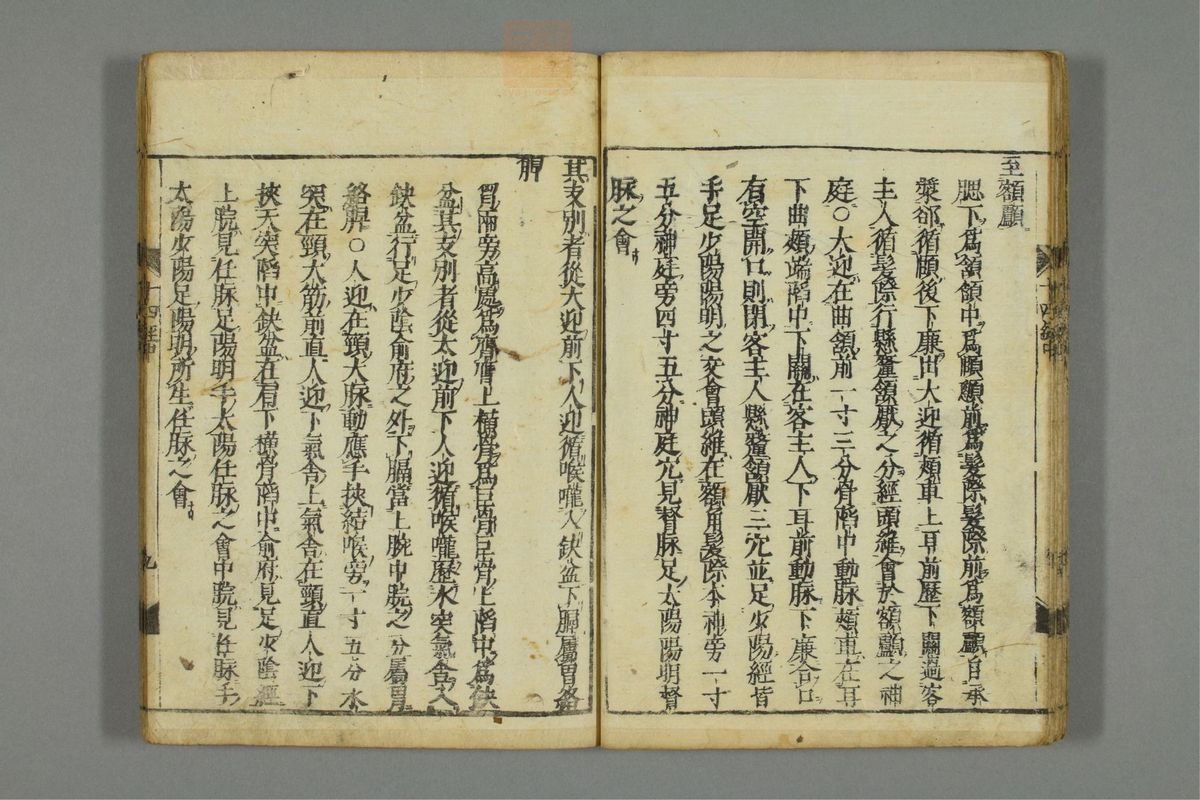 至額顱
腮下爲頷頷中爲頤顖前爲髮際髮際前爲額顱自承
漿郤循頤後下廉出大迎循頰車上耳前歷下關過客
主人循髮際行懸釐頷厭之分經頭維會於額顱之神
庭○大迎在曲頷前一寸三分骨陷中動脉頰車在耳
下曲頰端陷中下關在客主人下耳前動脉下廉合口
有空開口則閉客主人懸釐頷厭三穴並足少陽經皆
手足少陽陽明之交會頭維在額角髮際本神旁一寸
五分神庭旁四寸五分神庭穴見督脉足太陽陽明督
脉之會
其支別者從大迎前下人迎循喉嚨入缺盆下膈屬胃絡
脾
胷兩旁高處爲膺膺上橫骨爲巨骨巨骨上陷中爲缺
盆其支別者從大迎前下人迎循喉嚨歷水突氣舍入
缺盆行足少陰俞府之外下膈當上脘中脘之分屬胃
絡脾○人迎在頸大脉動應手挾結喉旁一寸五分水
突在頸大筋前直人迎下氣舍上氣舍在頸直人迎下
挾天突陷中缺盆在肩下橫骨陷中俞府見足少陰經
上脘見任脉足陽明手太陽任脉之會中脘見任脉手
太陽少陽足陽明所生任脉之會
十四經中
九